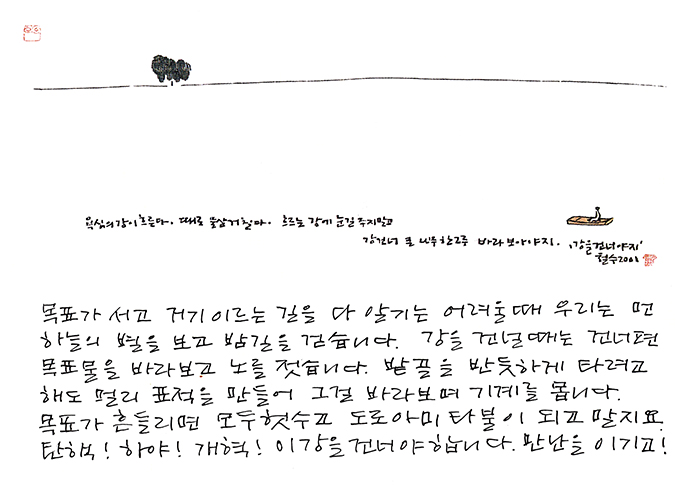 욕심의 강이 흐른다. 때로 물살 거칠다. 흐르는 강에 눈길 주지말고
강건너 큰 나무 한그루 바라보아야지. '강을 건너야지'
철수2001
목표가 서고 거기 이르는 길을 다 알기는 어려울때 우리는 먼
하늘의 별을 보고 밤길을 걷습니다. 강을 건널때는 건너편
목표물을 바라보고 노를 젓습니다. 밭골을 반듯하게 타려고
해도 멀리 표적을 만들어 그걸 바라보며 기계를 몹니다.
목표가 흔들리면 모두 헛수고 도로아미타불이 되고 말지요.
탄핵! 하야! 개혁! 이 강을 건너야 합니다. 만난을 이기고!